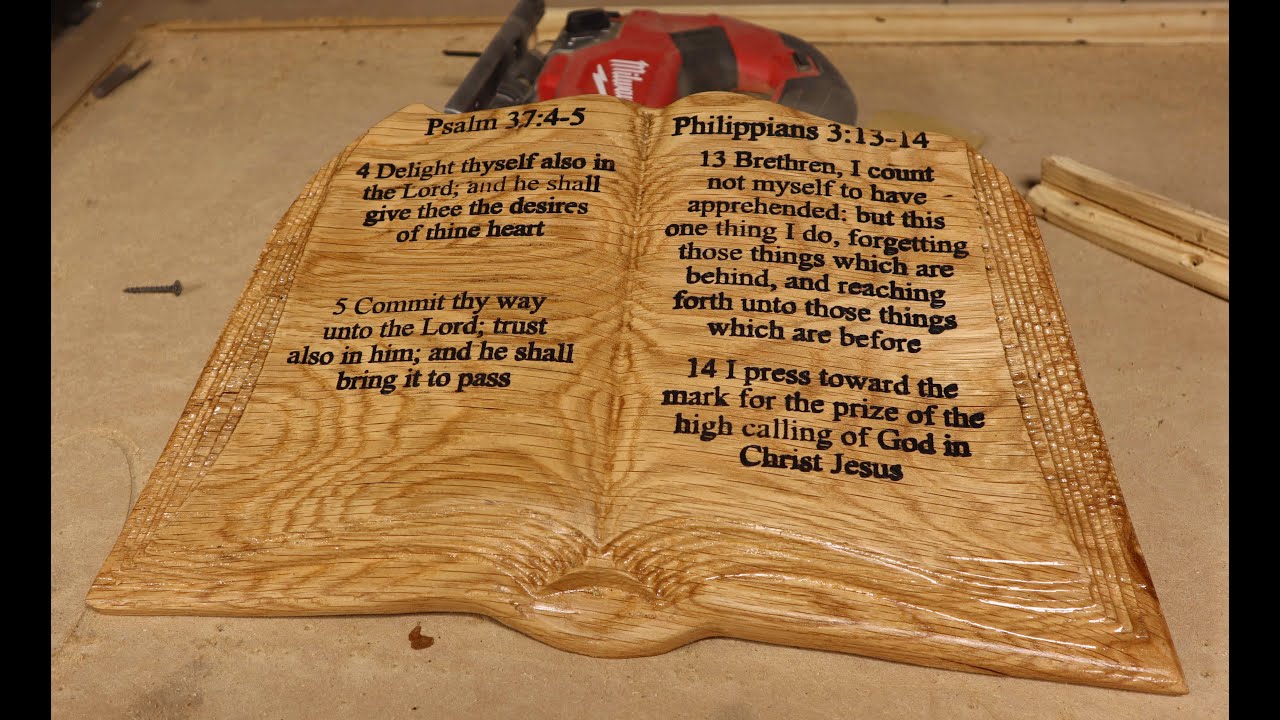 Psalm 37:4-5
4 Delight thyself also in
the Lord; and he shall
give thee the desires
of thine heart
5 Commit thy way
unto the Lord; trust
also in him; and he shall
bring it to pass
Philippians 3:13-14
13 Brethren, I count
not myself to have
apprehended: but this
one thing I do, forgetting
those things which are
behind, and reaching
forth unto those things
which are before
14 I press toward the
mark for the prize of the
high calling of God in
Christ Jesus